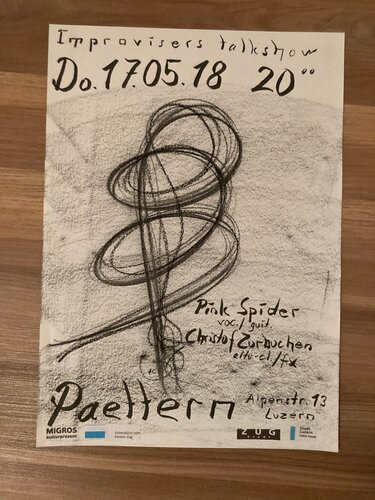 Improvisers talkshow
Do. 17.05.18 20ºº
Pink Spider
voc./guit
Christof Zurbuchen
altu-cl/fx
Paettern Alpenstr. 13
Luzern
MIGROS
kulturprozent
Unterstützt vom
Kanton Zug
ZUG
Stadt
Luzern